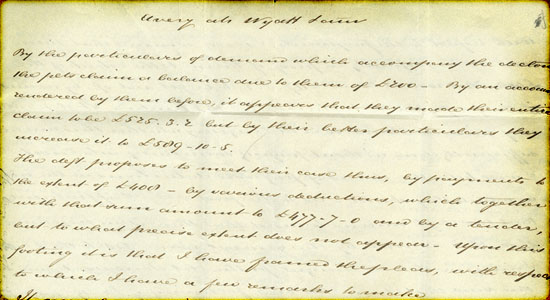 Avery ats Wyatt
By the particulars of demand which accompany the declon
the pltfs claim a balance due to them of £200 - By an account
rendered by them before, it appears that they made their entire
claim to be £525. 3. 2 but by their better particulars they
increase it to £509-10-5.
The deft proposes to meet their case thus, by payments to
the extent of £400 - by various deductions, which together
with that sum amount to £477-7-0 and by a tender,
but to what precise extent does not appear - Upon this
footing it is that I have framed the pleas, with respect
to which I have a few remarks to make